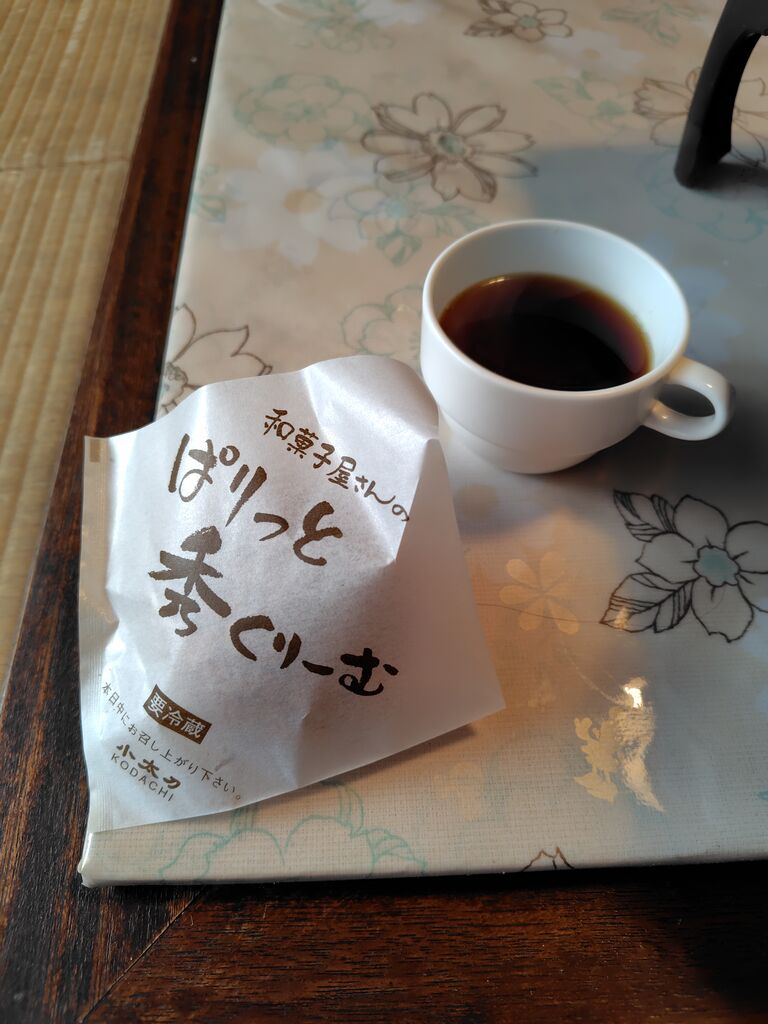 和菓子屋さんの
ぱりっと
秀くりーむ
要冷蔵
本日中にお召し上がり下さい。
小太刀
KODACHI